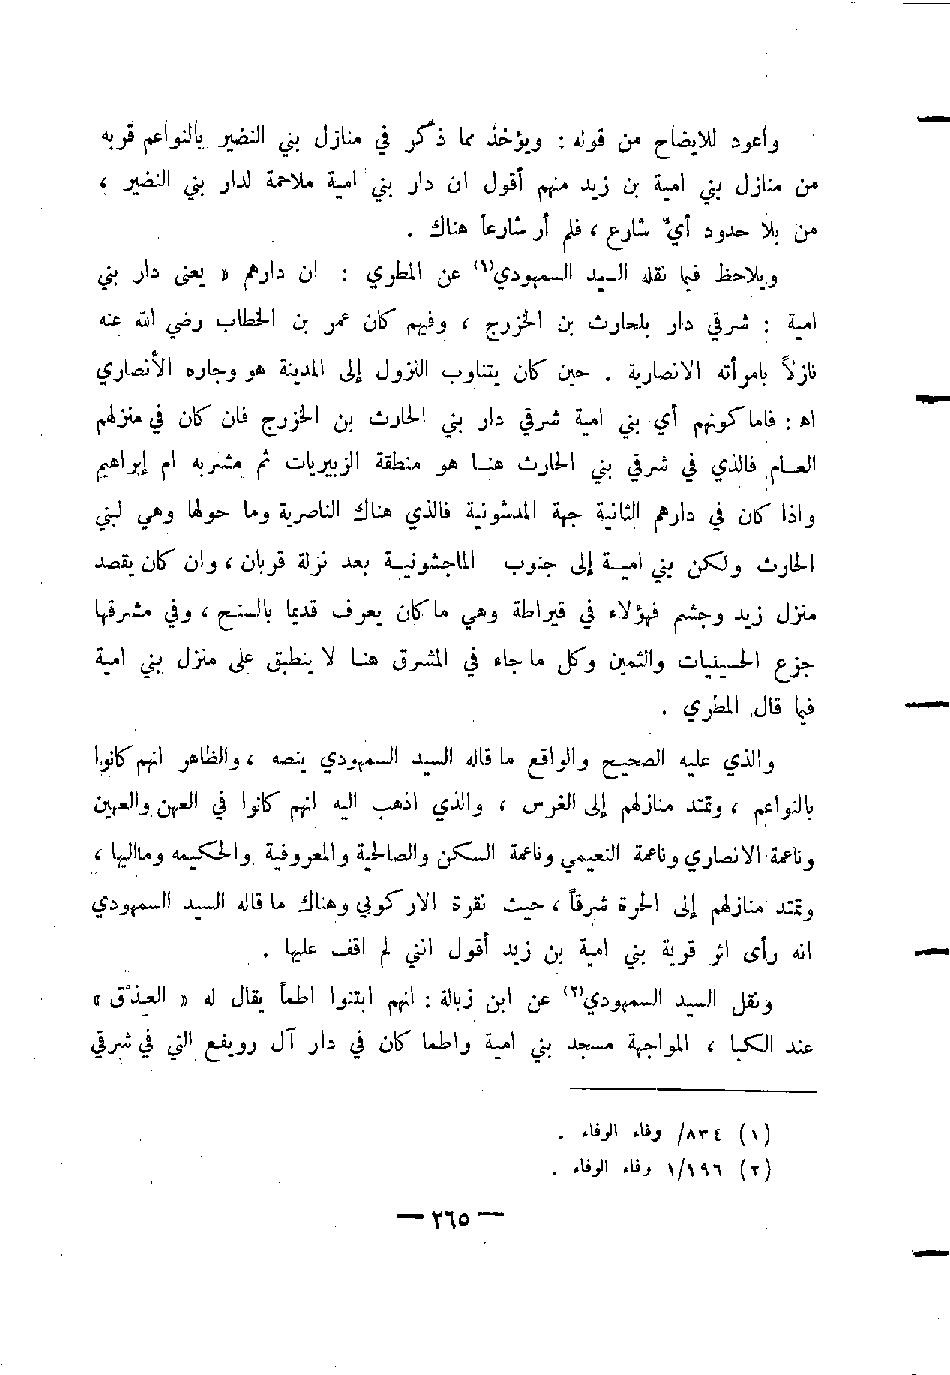 وأعود للايضاح من قوله : ويؤخذ مما ذكر في منازل بني النضير بالنواعم قربه
من منازل بني امية بن زيد منهم أقول ان دار بني امية ملاحمة لدار بني النضير ،
من بلا حدود أيّ شارع ، فلم أر شارعاً هناك .
ويلاحظ فيما نقله السيد السمهودي(١) عن المطري : ان دارهم « يعنى دار بني
امية : شرقي دار بلحارث بن الخزرج ، وفيهم كان عمر بن الخطاب رضي الله عنه
نازلاً بامرأته الانصارية . حين كان يتناوب النزول إلى المدينة هو وجاره الأنصاري
اه : فاما كونهم أي بني امية شرقي دار بني الحارث بن الخزرج فان كان في منزلهم
العام فالذي في شرقي بني الحارث هنا هو منطقة الزبيريات ثم مشربه ام إبراهيم
واذا كان في دارهم الثانية جهة المدشونية فالذي هناك الناصرية وما حولها وهي لبني
الحارث ولكن بني امية إلى جنوب الماجشونية بعد نزلة قربان ، وان كان يقصد
منزل زيد وجشم فهؤلاء في قيراطة وهي ما كان يعرف قديما بالسنح ، وفي مشرقها
جزع الحسينيات والثمين وكل ما جاء في المشرق هنا لا ينطبق على منزل بني امية
فيما قال المطري .
والذي عليه الصحيح والواقع ما قاله السيد السمهودي ينصه ، والظاهر انهم كانوا
بالنواعم ، وتمتد منازلهم إلى الغرس ، والذي اذهب اليه انهم كانوا في العهن والعهين
وناعمة الانصاري وناعمة النعيمي وناعمة السكن والصالحية والمعروفية والحكيمه ومااليها ،
وتمتد منازلهم إلى الحرة شرقاً ، حيث نقرة الاركوبي وهناك ما قاله السيد السمهودي
انه رأى اثر قرية بني امية بن زيد أقول انني لم اقف عليها .
ونقل السيد السمهودي(٢) عن ابن زبالة : انهم ابتنوا اطماً يقال له « العذق »
عند الكبا ، المواجهة مسجد بني امية واطما كان في دار آل رويفع التي في شرقي
(١) ٨٣٤/ وفاء الوفاء .
(٢) ١/١٩٦ وفاء الوفاء .
— ٢٦٥ —